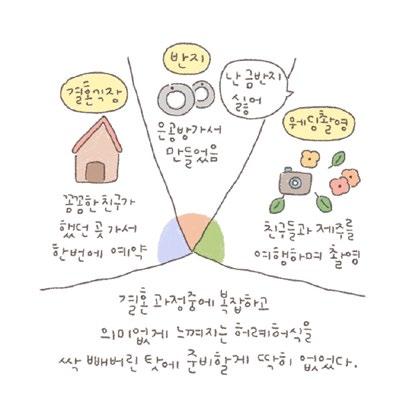 결혼식장
꼼꼼한 친구가
했던 곳 가서
한번에 예약
반지
은공방가서
만들었음
난 금반지
싫어
웨딩촬영
친구들과 제주를
여행하며 촬영
결혼 과정중에 복잡하고
의미없게 느껴지는 허례허식을
싹 빼버린 탓에 준비할게 딱히 없었다.